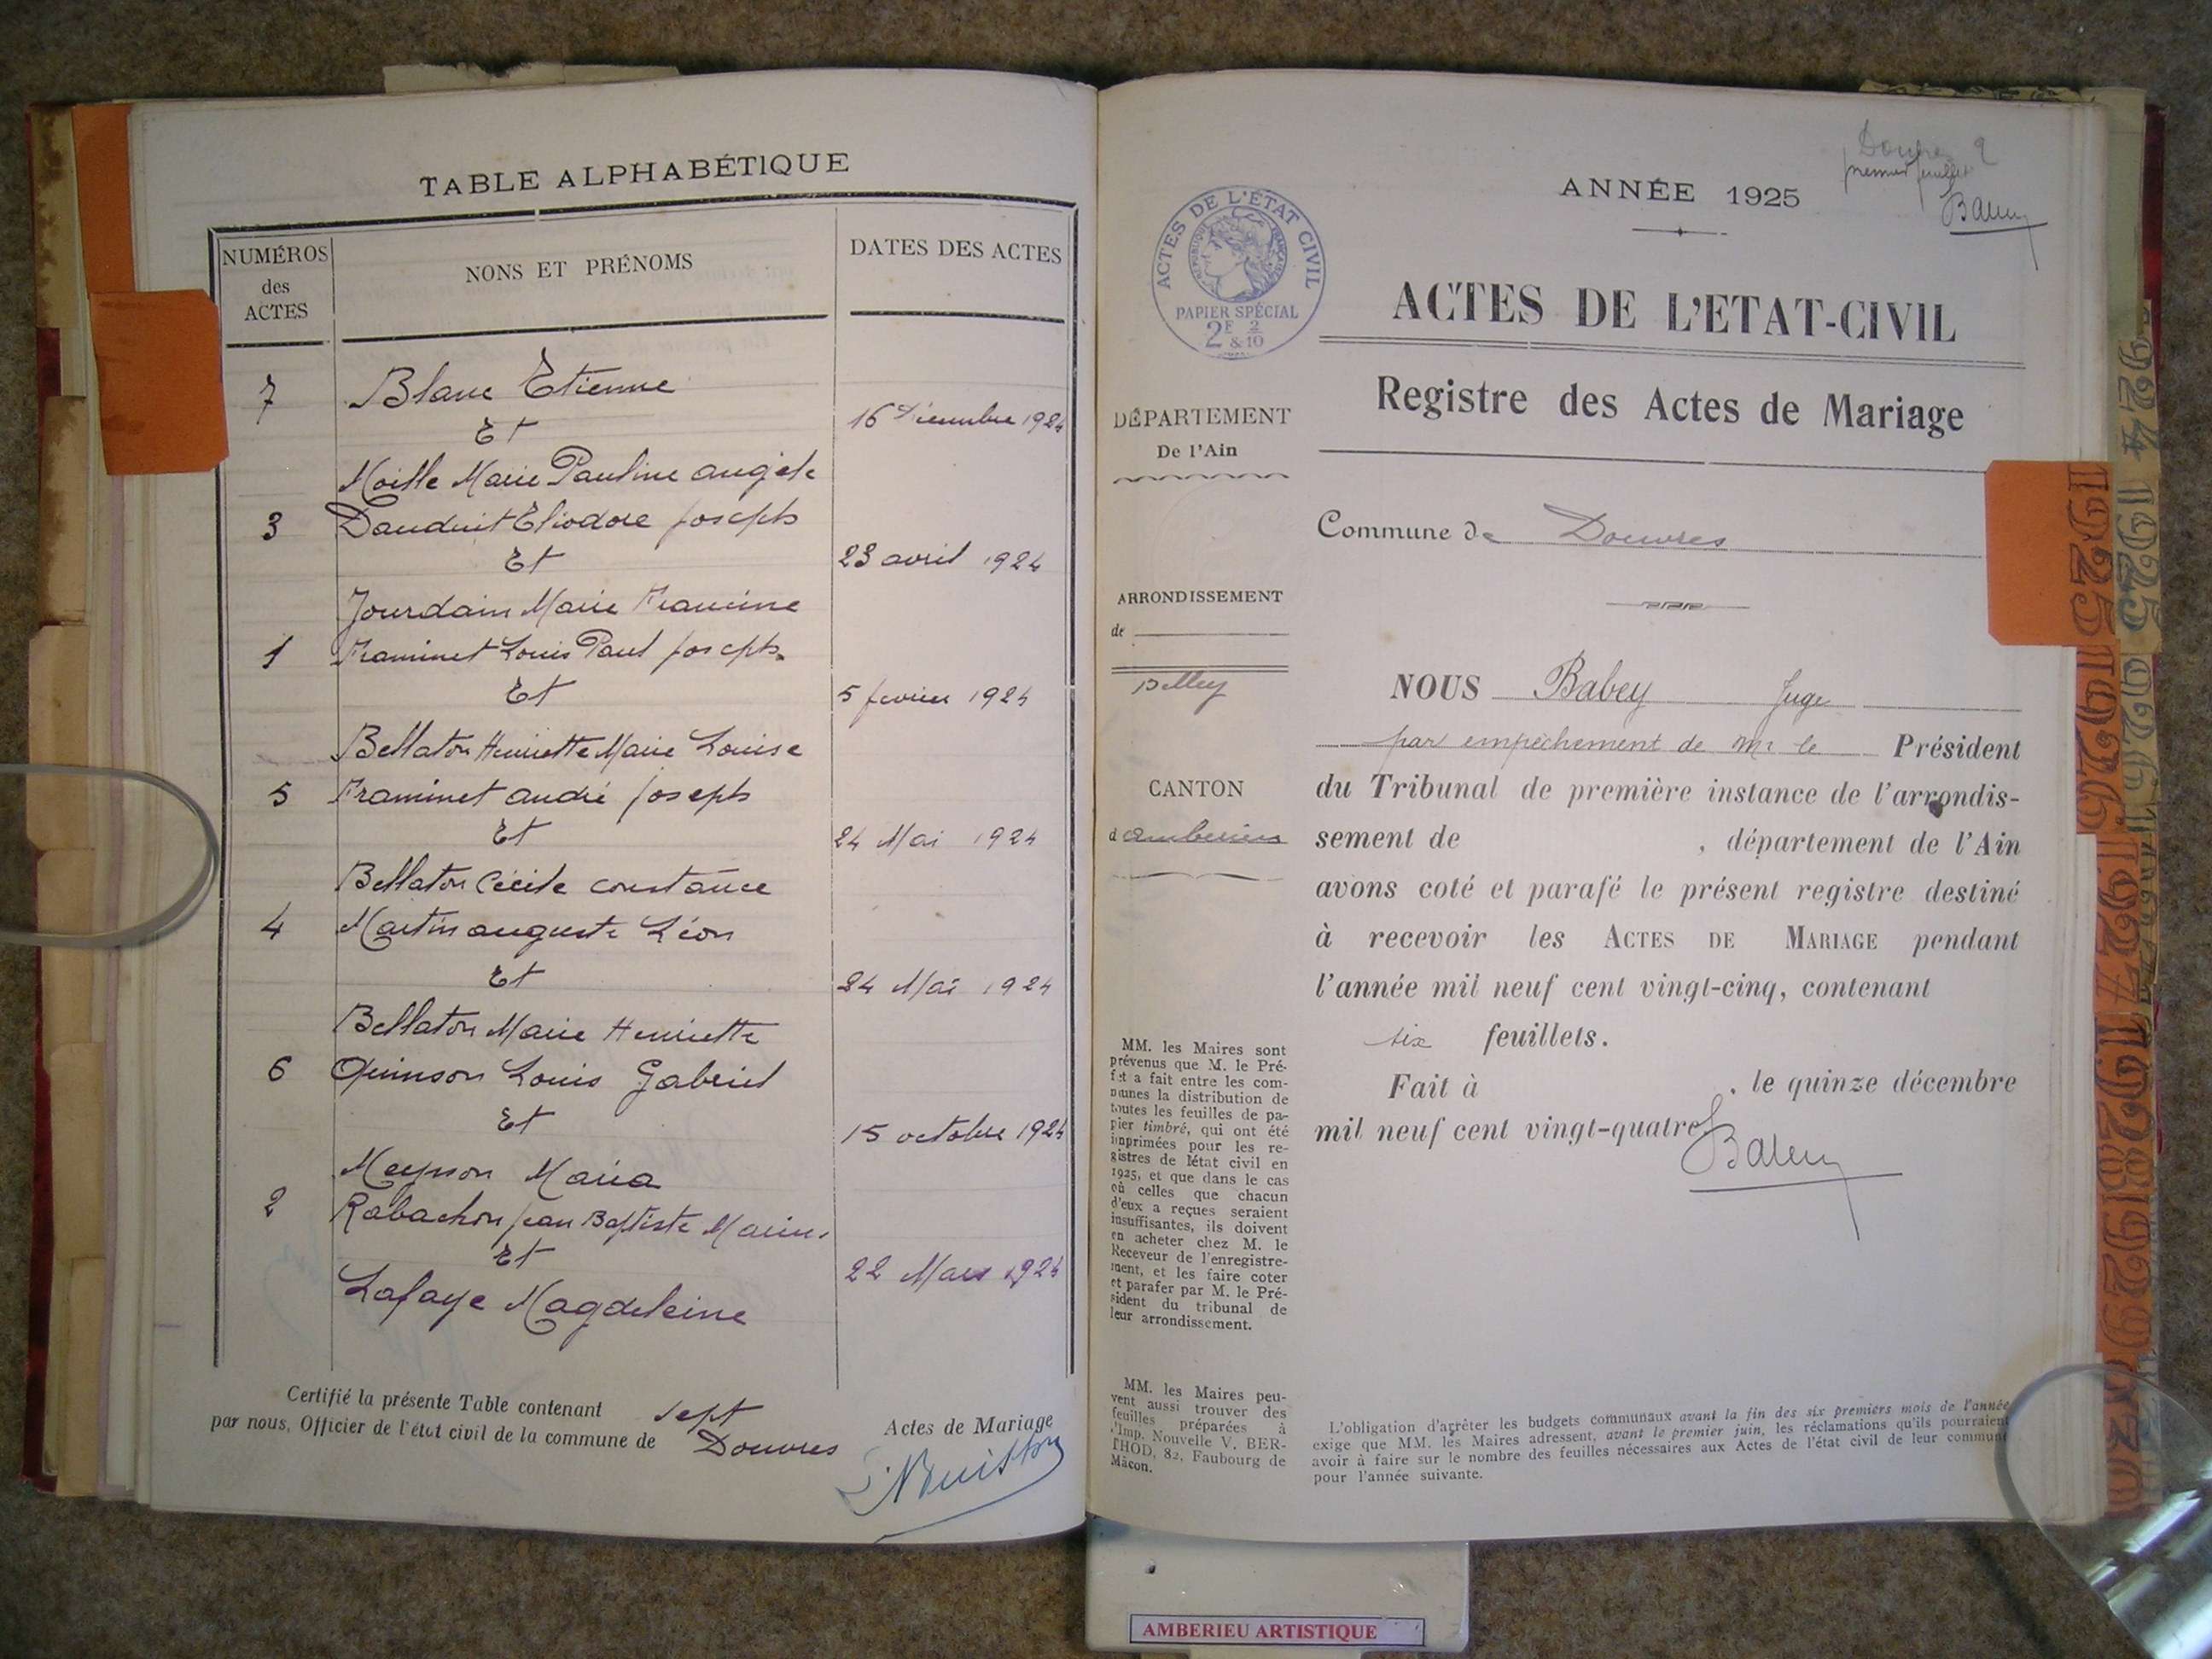 TABLE ALPHABÉTIQUE
NUMÉROS des ACTES
NONS ET PRÉNOMS
DATES DES ACTES
7 Blanc Etienne
Et
16 Décembre 1924
Moille Marie Pauline Angèle
3 Dauduit Eliodore Joseph
Et
23 avril 1924
Jourdain Marie Francine
1 Framinet Louis Paul Joseph
Et
5 fevrier 1924
Bellaton Henriette Marie Louise
5 Framinet andré Joseph
Et
24 Mai 1924
Bellaton Cécile constance
4 Martin auguste Léon
Et
24 Mai 1924
Bellaton Marie Henriette
6 Quinson Louis Gabriel
Et
15 octobre 1924
Meynson Maria
2 Rabachon Jean Baptiste Marius
Et
22 Mars 1924
Lafaye Magdeleine
Certifié la présente Table contenant sept Actes de Mariage
par nous, Officier de l'état civil de la commune de Douvres
ANNÉE 1925
Douvres
premier feuillet
Babey
ACTES DE L'ÉTAT CIVIL
RÉPUBLIQUE FRANÇAISE
PAPIER SPÉCIAL
2F & 2/10
ACTES DE L'ETAT-CIVIL
Registre des Actes de Mariage
DÉPARTEMENT
De l'Ain
Commune de Douvres
ARRONDISSEMENT
de
Belley
CANTON
d'amberieu
NOUS Babey Juge
par empêchement de Mr le Président
du Tribunal de première instance de l'arrondis-
sement de , département de l'Ain
avons coté et parafé le présent registre destiné
à recevoir les ACTES DE MARIAGE pendant
l'année mil neuf cent vingt-cinq, contenant
six feuillets.
Fait à , le quinze décembre
mil neuf cent vingt-quatre
Babey
MM. les Maires sont
prévenus que M. le Pré-
fet a fait entre les com-
munes la distribution de
toutes les feuilles de pa-
pier timbré, qui ont été
imprimées pour les re-
gistres de l'état civil en
1925, et que dans le cas
où celles que chacun
d'eux a reçues seraient
insuffisantes, ils doivent
en acheter chez M. le
Receveur de l'enregistre-
ment, et les faire coter
et parafer par M. le Pré-
sident du tribunal de
leur arrondissement.
MM. les Maires peu-
vent aussi trouver des
feuilles préparées à
l'Imp. Nouvelle V. BER-
THOD, 82, Faubourg de
Mâcon.
L'obligation d'arrêter les budgets communaux avant la fin des six premiers mois de l'année
exige que MM. les Maires adressent, avant le premier juin, les réclamations qu'ils pourraient
avoir à faire sur le nombre des feuilles nécessaires aux Actes de l'état civil de leur commune
pour l'année suivante.
1925
1926
1927
1928
1929
1924
1925
1926
AMBERIEU ARTISTIQUE